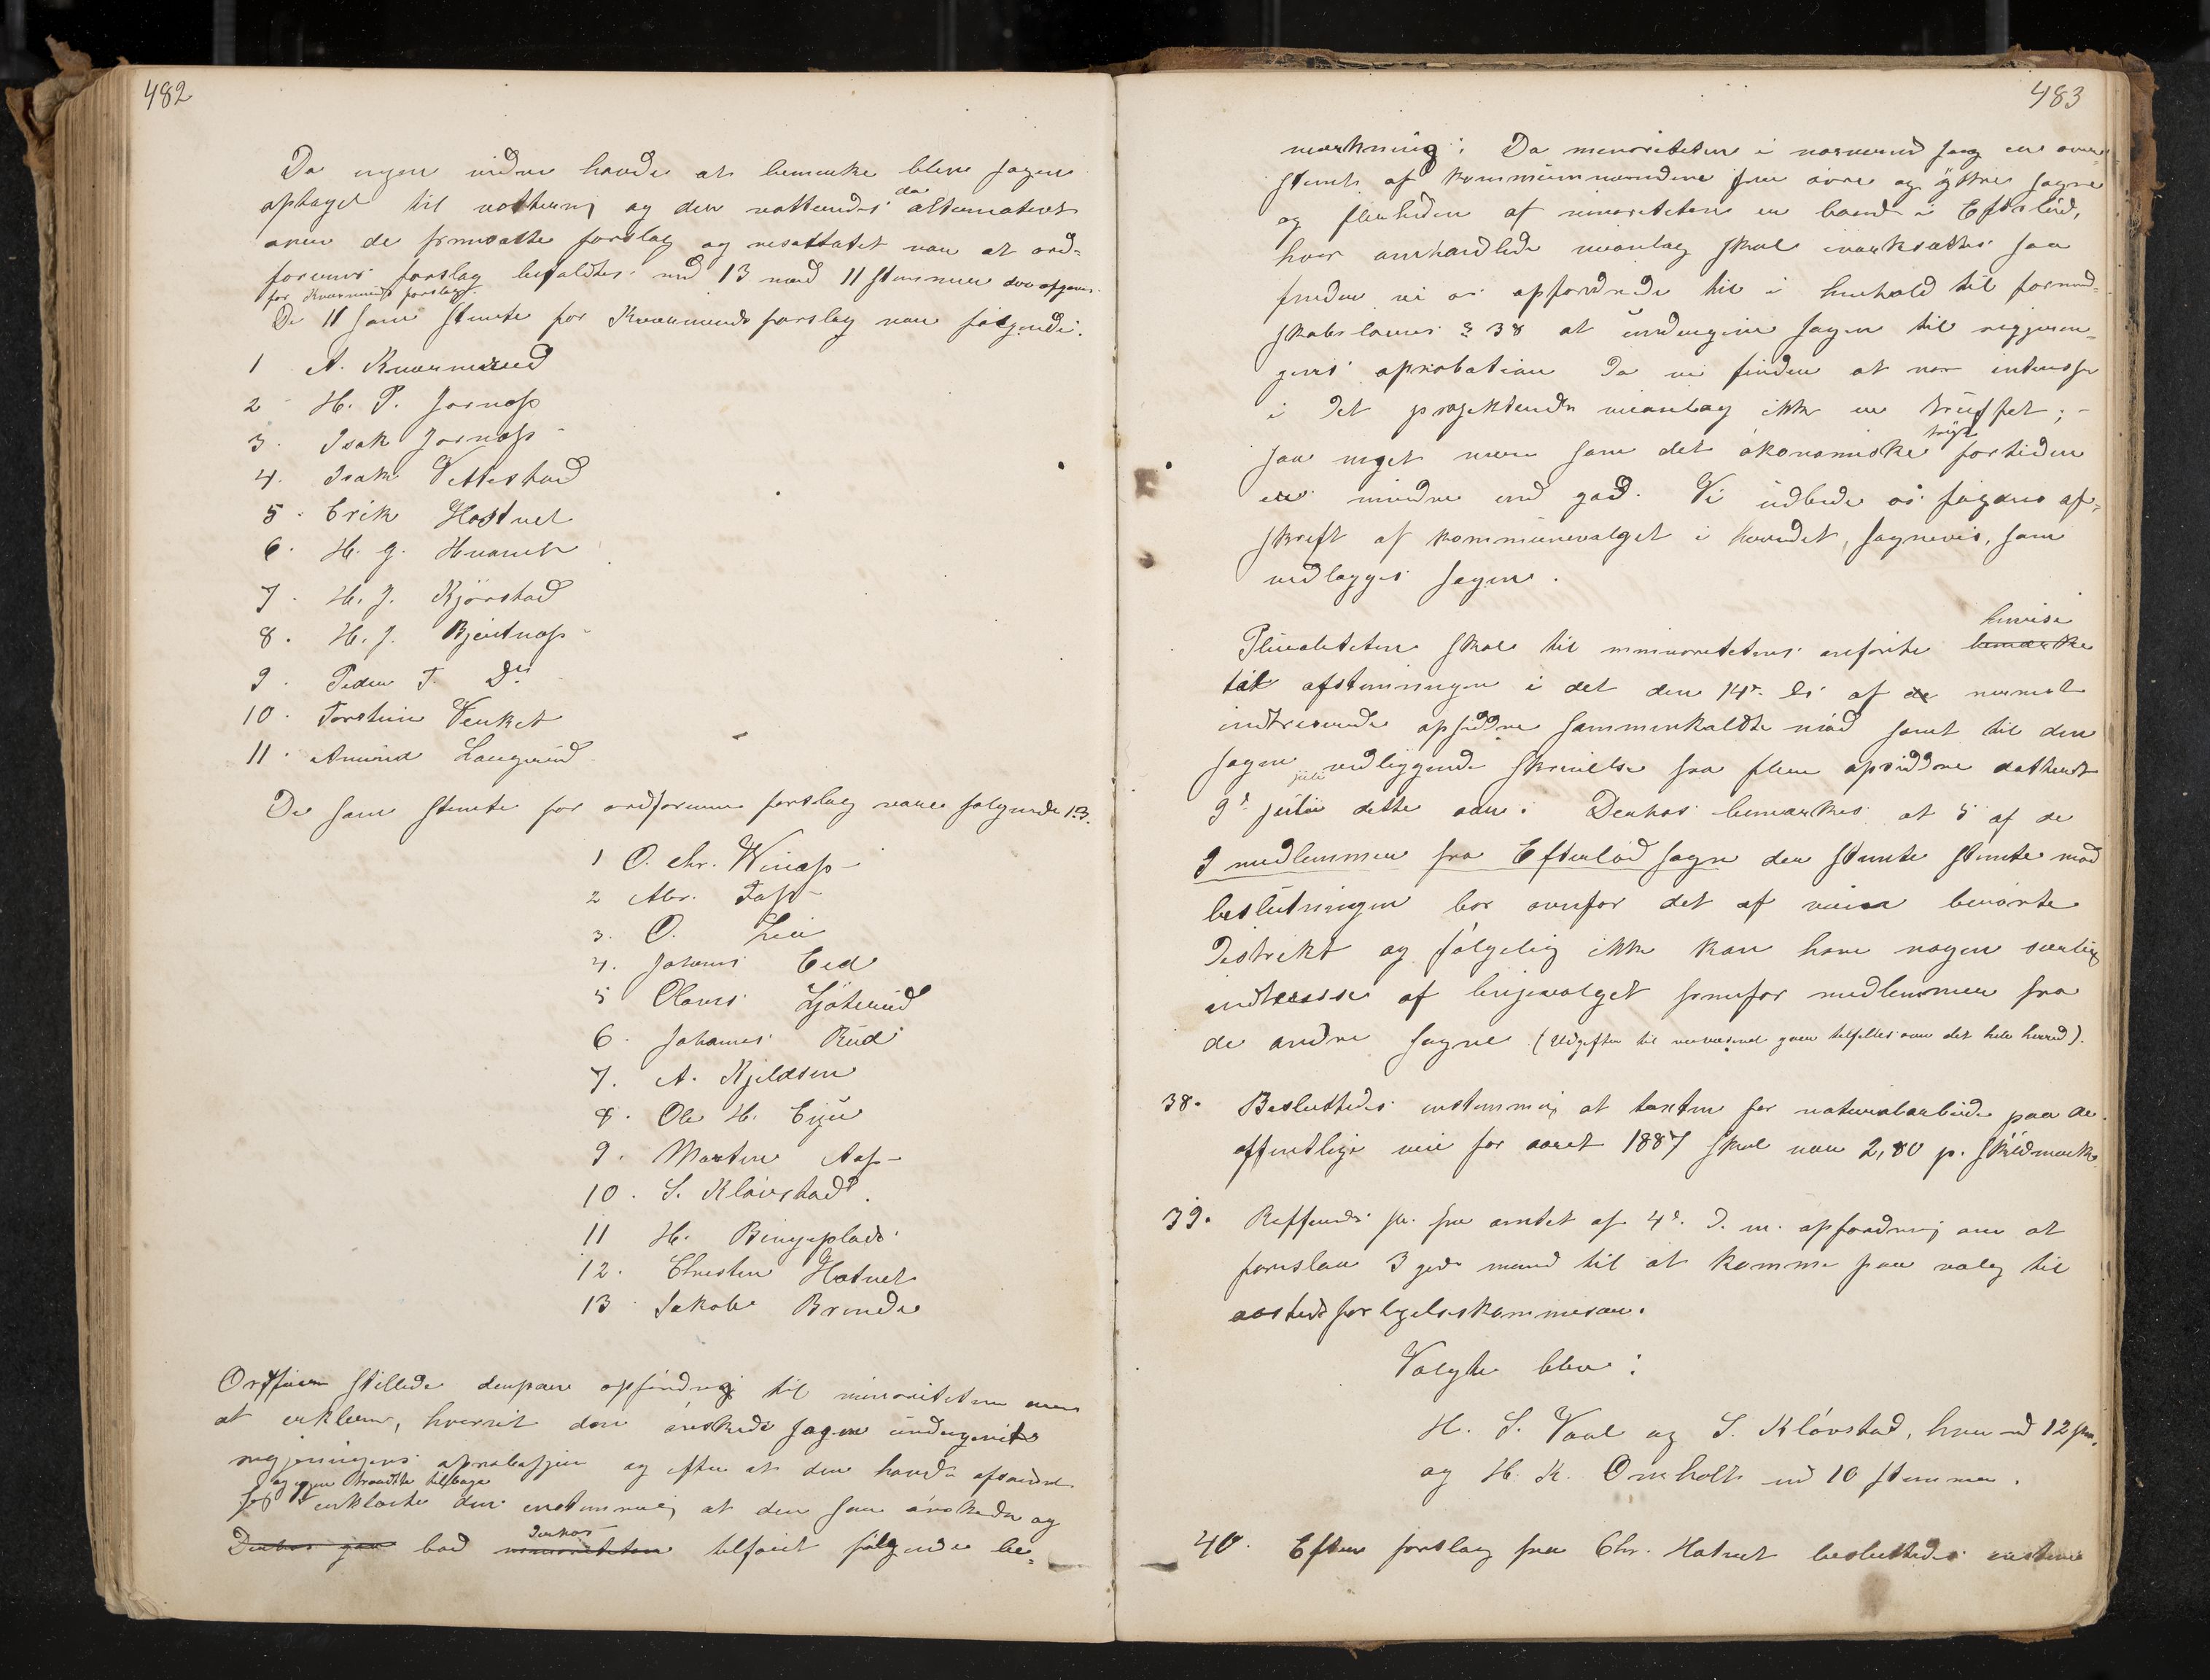 482
Da ingen videre havde at bemerke blev sagen
optaget til vottering og der votteredes da alternativt
over de fremsatte forslag og resultatet var at ord-
førerens forslag befaldtes med 13 mod 11 stemmer der afgaves
for Kværnmoeds forslag.
De 11 som stemte for Kværnmoeds forslag var følgende:
1 A.
2 H. P. Jornass
3. Isak Jornass
4. Isak Vettestad
5. Erik Hostvet
6. H. J.
7. H. J. Kjørstad
8. H. J.
9. Peder T. Do
10. Torstein Venket
11. Amund Langerud
De som stemte for ordførerens forslag vare følgende 13.
1 O. Chr. Winass
2 Abr. Foss
3. O. Lie
4. Johanes Eed
5 Olaves
6. Johannes Rud
7. A. Kjeldsen
8. Ole H. Eije
9. Martin Aas
10. S. Kløvstad.
11 H. Bingeplads
12. Christen Hotvet
13 Jakob Brunde
Ordfører stillede derpaa opfordring til minoriteten om
at erklere, hvorvidt den ønskede sagen undergivet
regjeringens aprobasjon og efter at den havde afsondret
sig og igjen traadte tilbage erklærte den enstemmig at den saa ønskede og
Derhos gav bad minoriteten derhos tilføiet følgende be-
483
merkning: Da minoriteten i nærværende sag er over-
stemt af kommunemendene fra øvre og ytre sogne
og flerheden af minoriteten er boende i Efteløt,
hvor omhandlede veianlæg skal iverksættes saa
finder vi os opfordrede til i henhold til formand-
skabslovens § 38 at undergive sagen til regjerin-
gens aprobation da vi finder at vor interesse
i det projekterede veianlæg ikke er truffet; -
saa meget mere som det økonomiske tryk fortiden
er mindre end god. Vi udbeder os sognes af-
skrift af kommunevalget i herredet, sognevis, som
vedlægges sagen.
Pluraliteten skal til minoritetens anførte bemerke henvise
til afstemningen i det den 14de ds af de nærmest
interesserede opsiddere sammenkaldte møde samt til den
sagen vedliggende skrivelse fra flere opsiddere datteret
9de juli juli dette aar. Derhos bemerkes at 5 af de
9 medlemmer fra Efteløt sogn der stemte stemte mod
beslutningen bor ovenfor det af veien berørte
distrikt og følgelig ikke kan have nogen særlig
interesse af linjevalget fremfor medlemmer fra
de andre sogne (Udgifter til veivæsenet gaar tilfelles over det hele herred).
38. Besluttedes enstemmig at taxten for naturalarbeide paa de
offentlige veie for aaret 1887 skal være 2,80 p. skyldmark.
39. Refferedes skr. fra amtet af 4de d. m. opfordring om at
foreslaa 3 gode mænd til at komme paa valg til
Valgte blev:
H. S. Vaal og S. Kløvstad, hver med 12 stm.
og H. K. Omholt med 10 stemmer.
40. Efter forslag fra Chr. Hotvet besluttedes enstem